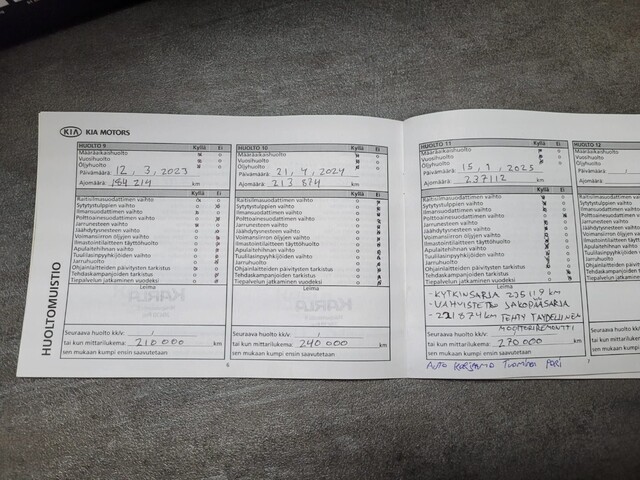 KIA KIA MOTORS
HUOLTOMUISTIO
HUOLTO 9 Kyllä Ei
Määräaikaishuolto
Vuosihuolto
Öljyhuolto
Päivämäärä: 12, 3, 2023
Ajomäärä: 184 214 km
Kyllä Ei
Raitisilmasuodattimen vaihto
Sytytystulppien vaihto
Ilmansuodattimen vaihto
Polttoainesuodattimen vaihto
Jarrunesteen vaihto
Jäähdytysnesteen vaihto
Voimansiirron öljyjen vaihto
Ilmastointilaitteen täyttöhuolto
Apulaitehihnan vaihto
Tuulilasinpyyhkijöiden vaihto
Jarruhuolto
Ohjainlaitteiden päivitysten tarkistus
Tehdaskampanjoiden tarkistus
Tiepalvelun jatkaminen vuodeksi
Leima
Seuraava huolto kk/v: /
tai kun mittarilukema: 210 000 km
sen mukaan kumpi ensin saavutetaan
6
HUOLTO 10 Kyllä Ei
Määräaikaishuolto
Vuosihuolto
Öljyhuolto
Päivämäärä: 21, 4, 2024
Ajomäärä: 213 874 km
Kyllä Ei
Raitisilmasuodattimen vaihto
Sytytystulppien vaihto
Ilmansuodattimen vaihto
Polttoainesuodattimen vaihto
Jarrunesteen vaihto
Jäähdytysnesteen vaihto
Voimansiirron öljyjen vaihto
Ilmastointilaitteen täyttöhuolto
Apulaitehihnan vaihto
Tuulilasinpyyhkijöiden vaihto
Jarruhuolto
Ohjainlaitteiden päivitysten tarkistus
Tehdaskampanjoiden tarkistus
Tiepalvelun jatkaminen vuodeksi
Leima
Seuraava huolto kk/v: /
tai kun mittarilukema: 240 000 km
sen mukaan kumpi ensin saavutetaan
HUOLTO 11 Kyllä Ei
Määräaikaishuolto
Vuosihuolto
Öljyhuolto
Päivämäärä: 15, 1, 2025
Ajomäärä: 237112 km
Kyllä Ei
Raitisilmasuodattimen vaihto
Sytytystulppien vaihto
Ilmansuodattimen vaihto
Polttoainesuodattimen vaihto
Jarrunesteen vaihto
Jäähdytysnesteen vaihto
Voimansiirron öljyjen vaihto
Ilmastointilaitteen täyttöhuolto
Apulaitehihnan vaihto
Tuulilasinpyyhkijöiden vaihto
Jarruhuolto
Ohjainlaitteiden päivitysten tarkistus
Tehdaskampanjoiden tarkistus
Tiepalvelun jatkaminen vuodeksi
Leima
- KYTKINSARJA 235119 km
- VAHVISTETTU JAKOPÄÄSARJA
- 221874 km TEHTY TÄYDELLINEN
MOOTTORIREMONTTI
Seuraava huolto kk/v: /
tai kun mittarilukema: 270 000 km
sen mukaan kumpi ensin saavutetaan
AUTO KORJAAMO TUOMINEN PORI
7
HUOLTO 12
Määräaikaishuolto
Vuosihuolto
Öljyhuolto
Päivämäärä:
Ajomäärä: